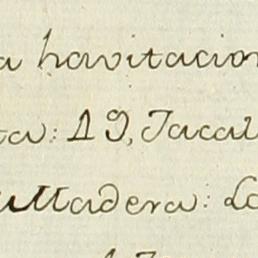 a havitacion
ta: 19, Jacal
Madera: La